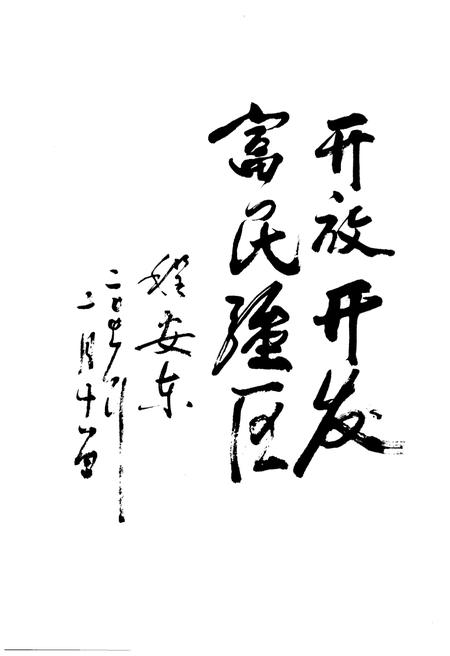 开放开发
富民强区
程安东
二〇〇七年
二月十一日